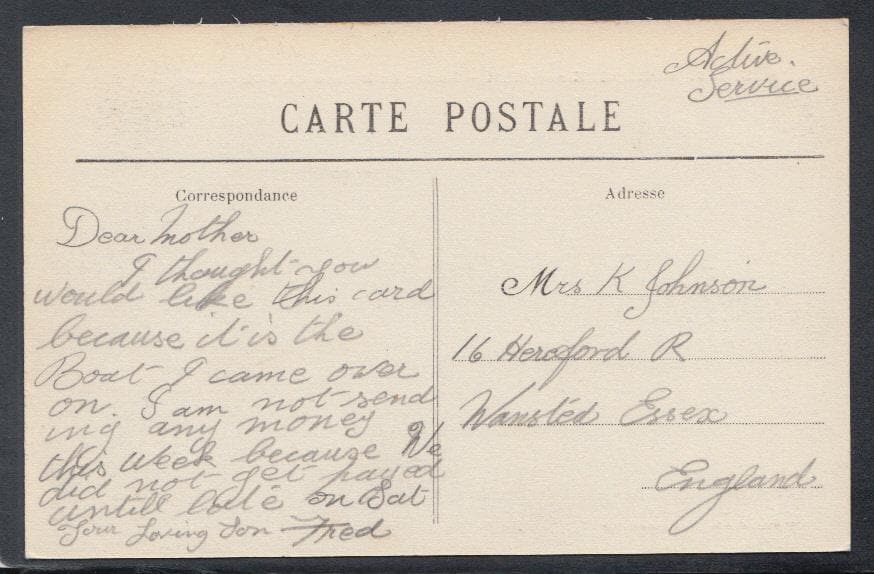 Active.
Service
CARTE POSTALE
Correspondance
Dear Mother
I thought you
would like this card
because it is the
Boat I came over
on. I am not send
ing any money
this week because We
did not get payed
untill late on Sat
Your Loving Son Fred
Adresse
Mrs K Johnson
16 Hereford R
Wansted Essex
England